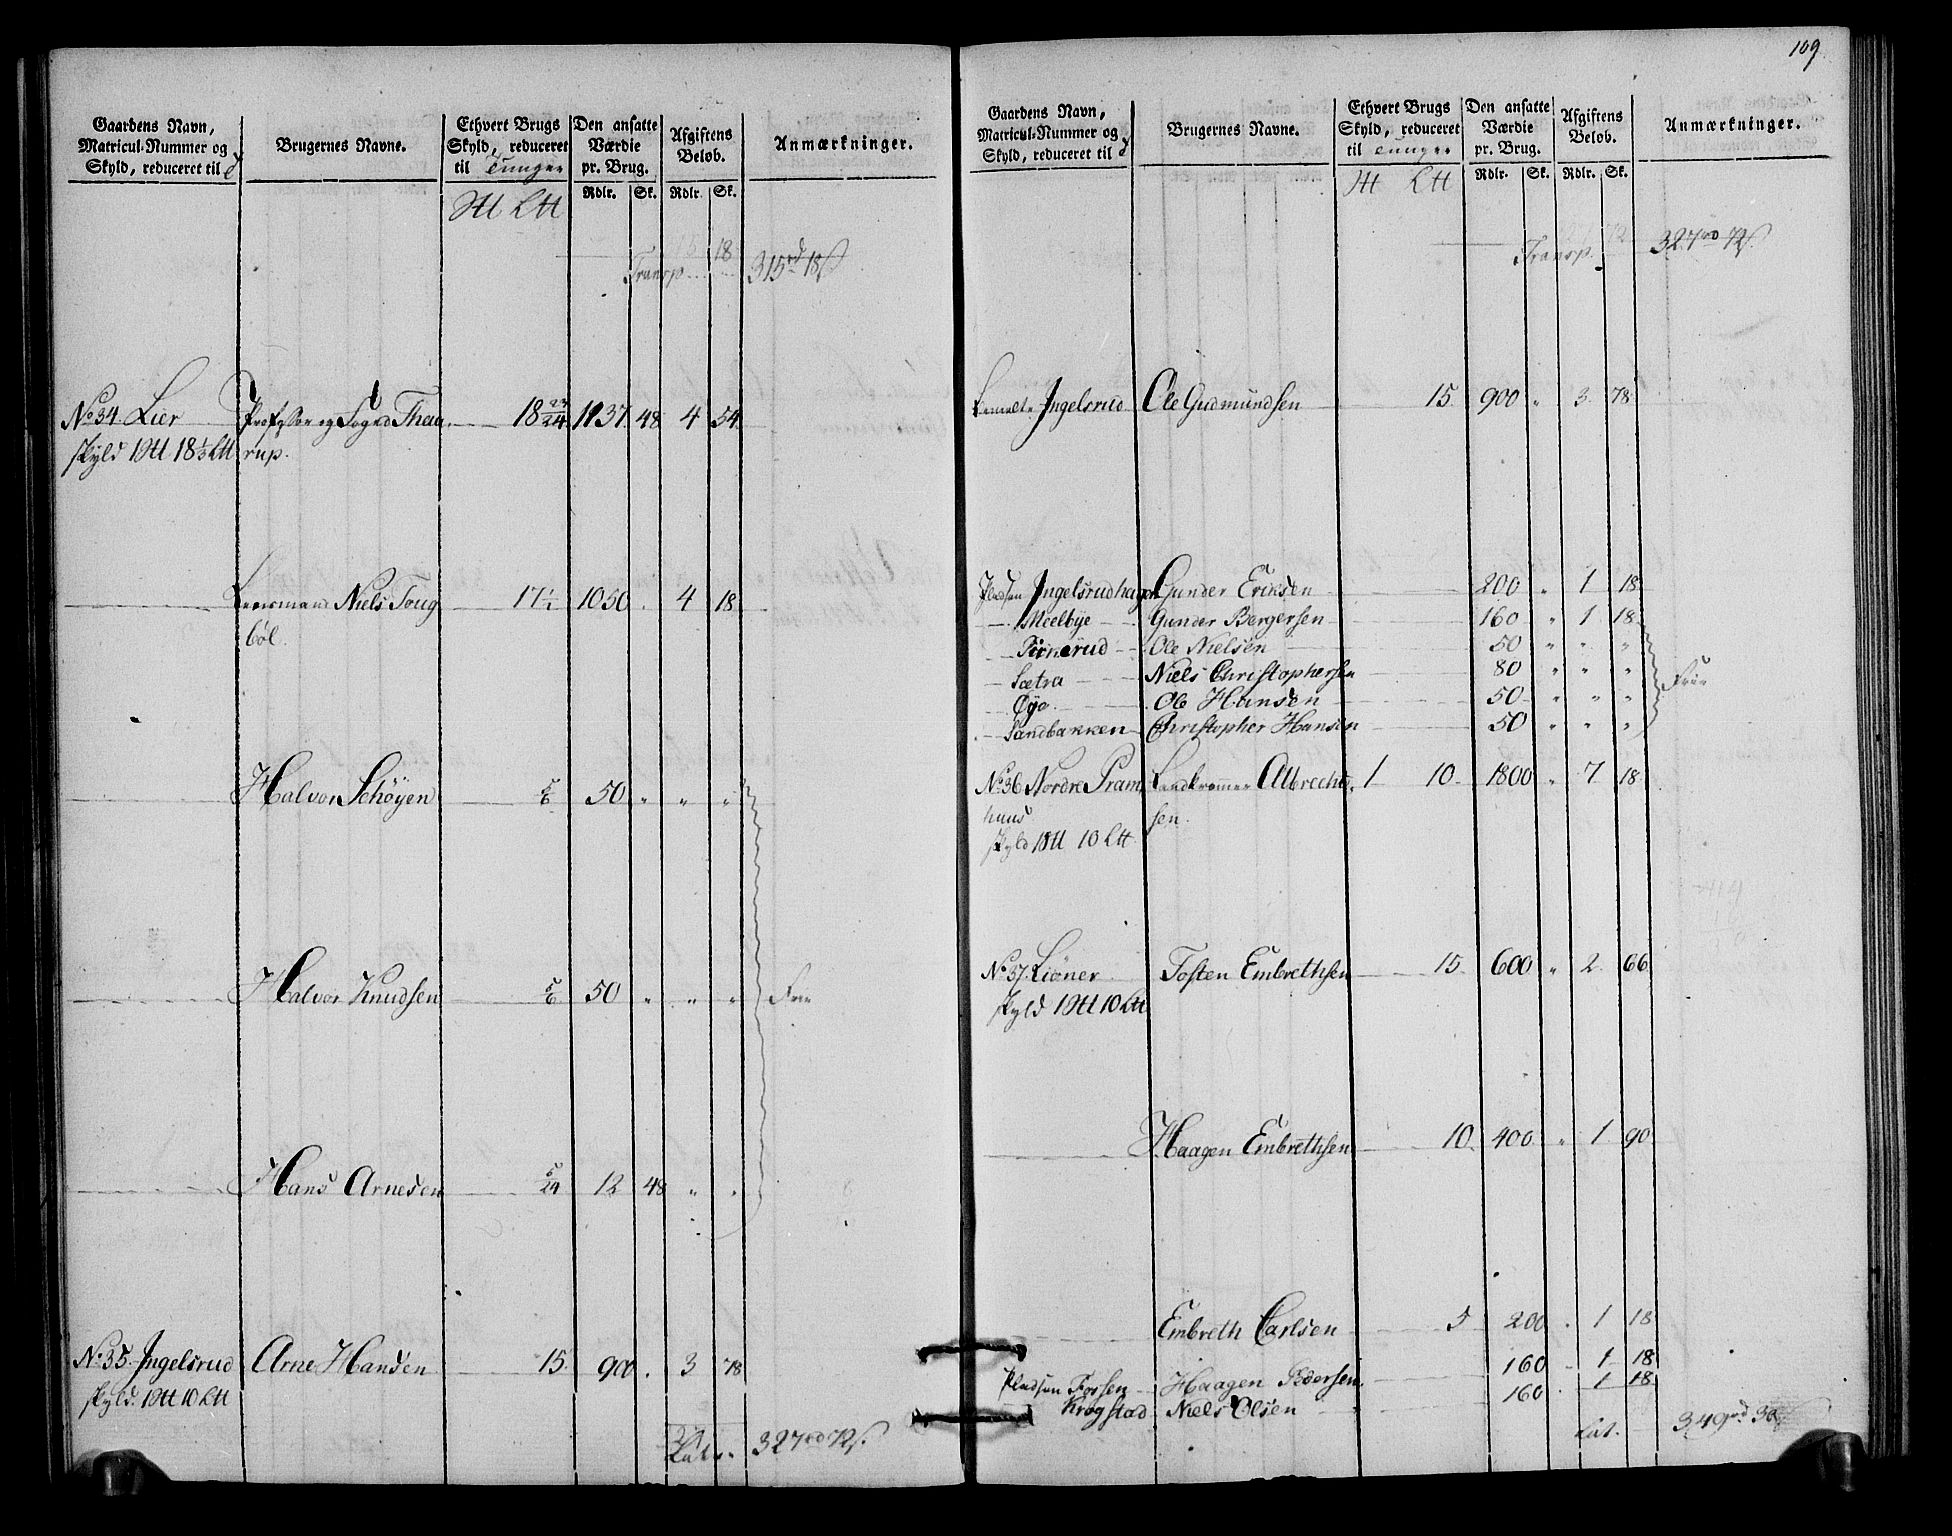 109
Gaardens Navn,
Matricul-Nummer og
Skyld, reduceret til
Brugernes Navne.
Ethvert Brugs
Skyld, reduceret
til Tunger
Den ansatte
Værdie
pr. Brug.
Afgiftens
Beløb.
Anmærkninger.
Rdlr. Sk. Rdlr. Sk.
Transp. 315rd 18ſ
No 34 Lier Professor og Sogne Thaa 18 23/24 1137 48 4 54
skyld 1 18⅓ rup.
Leensmand Niels Toug 17½ 1050 " 4 18
böl.
Halvor Schöyen 5/6 50 " " "
Halvor Knudsen 5/6 50 " " " Frie
Hans Arnesen 5/24 12 48 " "
No 35. Ingelsrud Arne Hansen 15 900 " 3 78
skyld. 1 10
Lat. 327rd 72ſ.
Gaardens Navn,
Matricul-Nummer og
Skyld, reduceret til
Brugernes Navne.
Ethvert Brugs
Skyld, reduceret
til Tunger
Den ansatte
Værdie
pr. Brug.
Afgiftens
Beløb.
Anmærkninger.
Rdlr. Sk. Rdlr. Sk.
Transp. 327rd 72ſ.
Ingelsrud Ole Gudmundsen 15 900 " 3 78
Pladsen Ingelsrudhagen Gunder Eriksen 200 " 1 18
Meelbye Gunder Bergersen 160 " 1 18
Ole Nielsen 50 " " "
Sætra Niels Christophersen 80 " " " Frie
Öye Ole Hansen 50 " " "
Sandbakken Christopher Hansen 50 " " "
No 36 Nordre Pram Landkræmer Albrecht 1 10 1800 " 7 18
huus sen.
skyld 1 10
No 37. Liöner Tosten Embrethsen 15 600 " 2 66
skyld 1 10
Haagen Embrethsen 10 400 " 1 90
Embreth Carlsen 5 200 " 1 18
Pladsen Fossen Haagen Pedersen 160 " 1 18
Krogstad Niels Olsen 160 " 1 18
Lat. 349rd 30